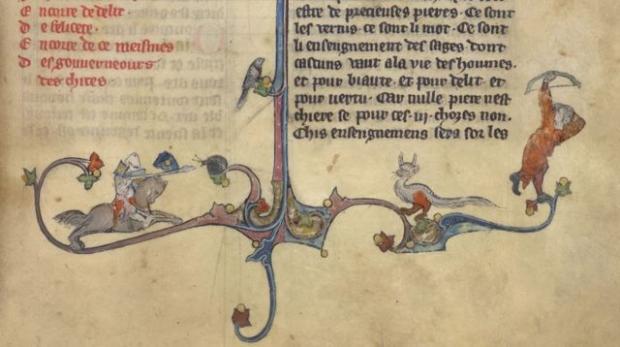 Encore de delit
De felicete
Encore de ce meismes
Des gouverneours
des chites
estre de precieuses pieres. Ce sont
les vertus. ce sont li mot. Ce sont
li enseignement des sages dont
cascuns vaut a la vie des houmes.
et pour biaute. et pour delit. et
pour vertu. Car nulle piere nest
chiere se pour ces .iij. choses non.
Chis enseignemens sera sor les